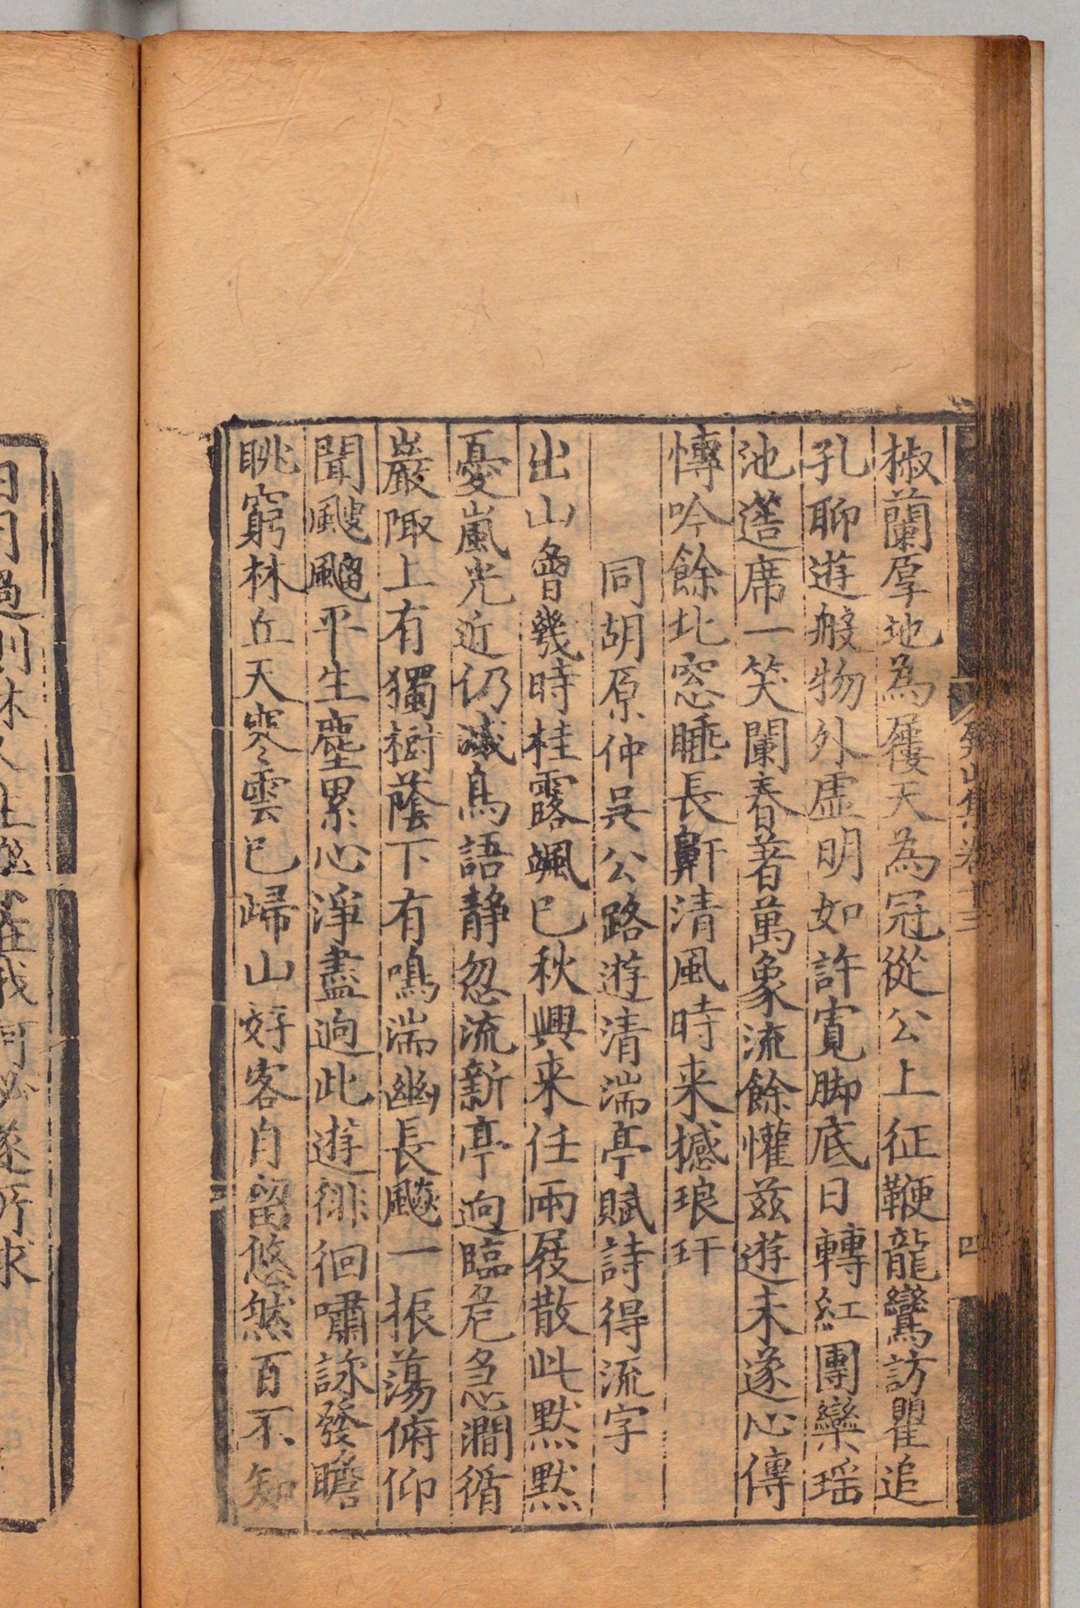 椒蘭厚地為屨天為冠從公上征鞭龍鸞訪瞿追
孔聊遊般物外虛明如許寬脚底日轉紅團欒瑶
池簉席一笑闌春著萬象流餘懽兹遊未遂心傳
慱吟餘北窓睡長鼾清風時来撼琅玕
同胡原仲吳公路遊清湍亭賦詩得流字
出山曾幾時桂露颯已秋興来任兩屐散此默默
憂嵐光近仍滅鳥語静忽流新亭逈臨危急澗循
巖陬上有獨樹蔭下有鳴湍幽長飈一振蕩俯仰
聞颼飀平生塵累心淨盡逈此遊徘徊嘯詠發瞻
眺窮林丘天寒雲已歸山好客自留悠然百不知
山集卷十三
四